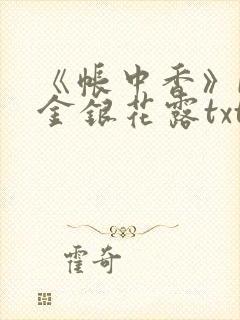 《帐中香》
金银花露txt
霍奇